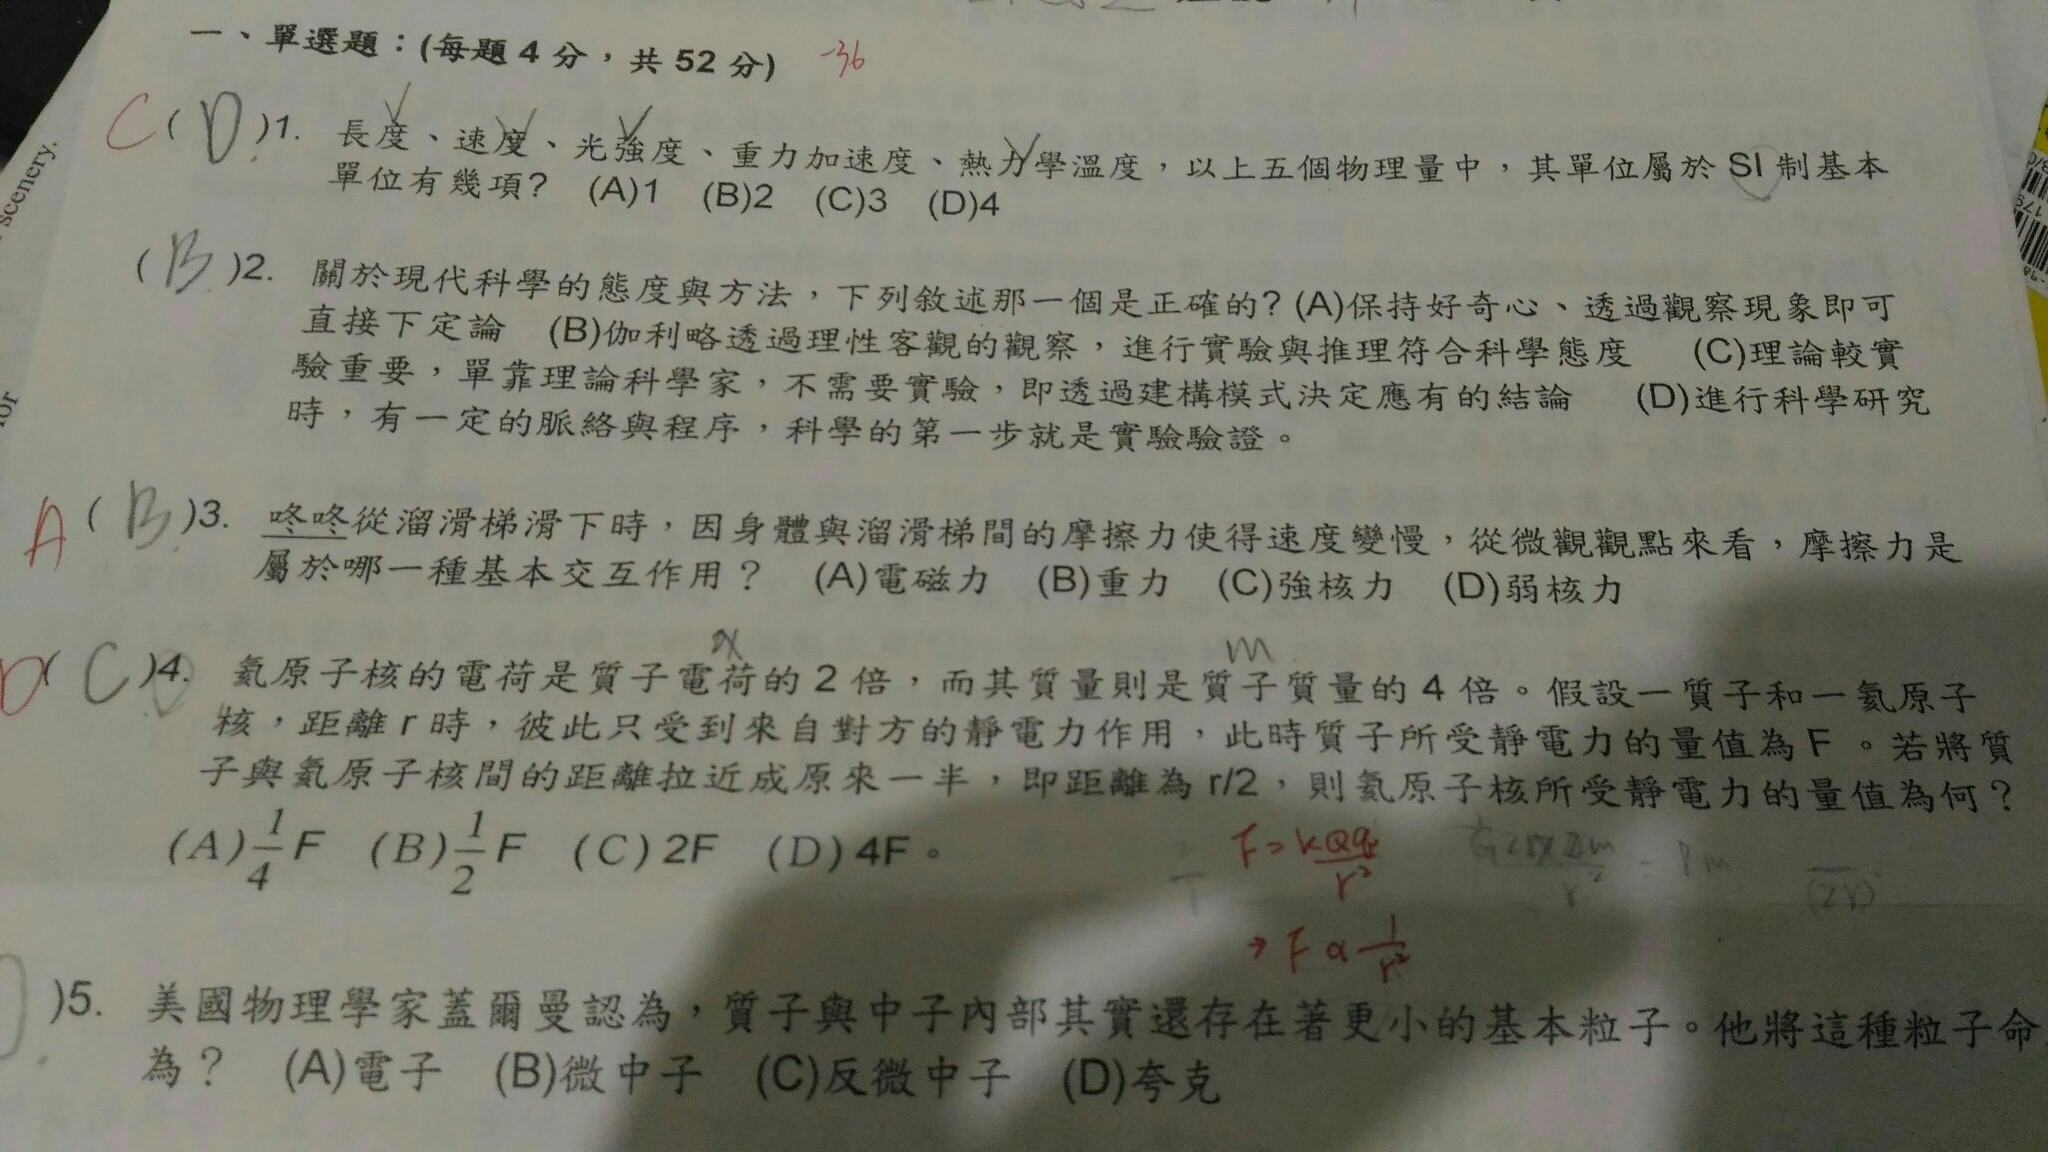 一、單選題：(每題 4 分，共 52 分) -36
C ( D )1. 長度、速度、光強度、重力加速度、熱力學溫度，以上五個物理量中，其單位屬於 SI 制基本
單位有幾項? (A)1 (B)2 (C)3 (D)4
( B )2. 關於現代科學的態度與方法，下列敘述那一個是正確的? (A)保持好奇心、透過觀察現象即可
直接下定論 (B)伽利略透過理性客觀的觀察，進行實驗與推理符合科學態度 (C)理論較實
驗重要，單靠理論科學家，不需要實驗，即透過建構模式決定應有的結論 (D)進行科學研究
時，有一定的脈絡與程序，科學的第一步就是實驗驗證。
A ( B )3. 咚咚從溜滑梯滑下時，因身體與溜滑梯間的摩擦力使得速度變慢，從微觀觀點來看，摩擦力是
屬於哪一種基本交互作用？ (A)電磁力 (B)重力 (C)強核力 (D)弱核力
x m
D ( C )4. 氦原子核的電荷是質子電荷的 2 倍，而其質量則是質子質量的 4 倍。假設一質子和一氦原子
核，距離 r 時，彼此只受到來自對方的靜電力作用，此時質子所受靜電力的量值為 F 。若將質
子與氦原子核間的距離拉近成原來一半，即距離為 r/2，則氦原子核所受靜電力的量值為何？
(A) 1/4 F (B) 1/2 F (C) 2F (D) 4F。
F = kQq/r²
→ F ∝ 1/r²
)5. 美國物理學家蓋爾曼認為，質子與中子內部其實還存在著更小的基本粒子。他將這種粒子命
為？ (A)電子 (B)微中子 (C)反微中子 (D)夸克
scenery.